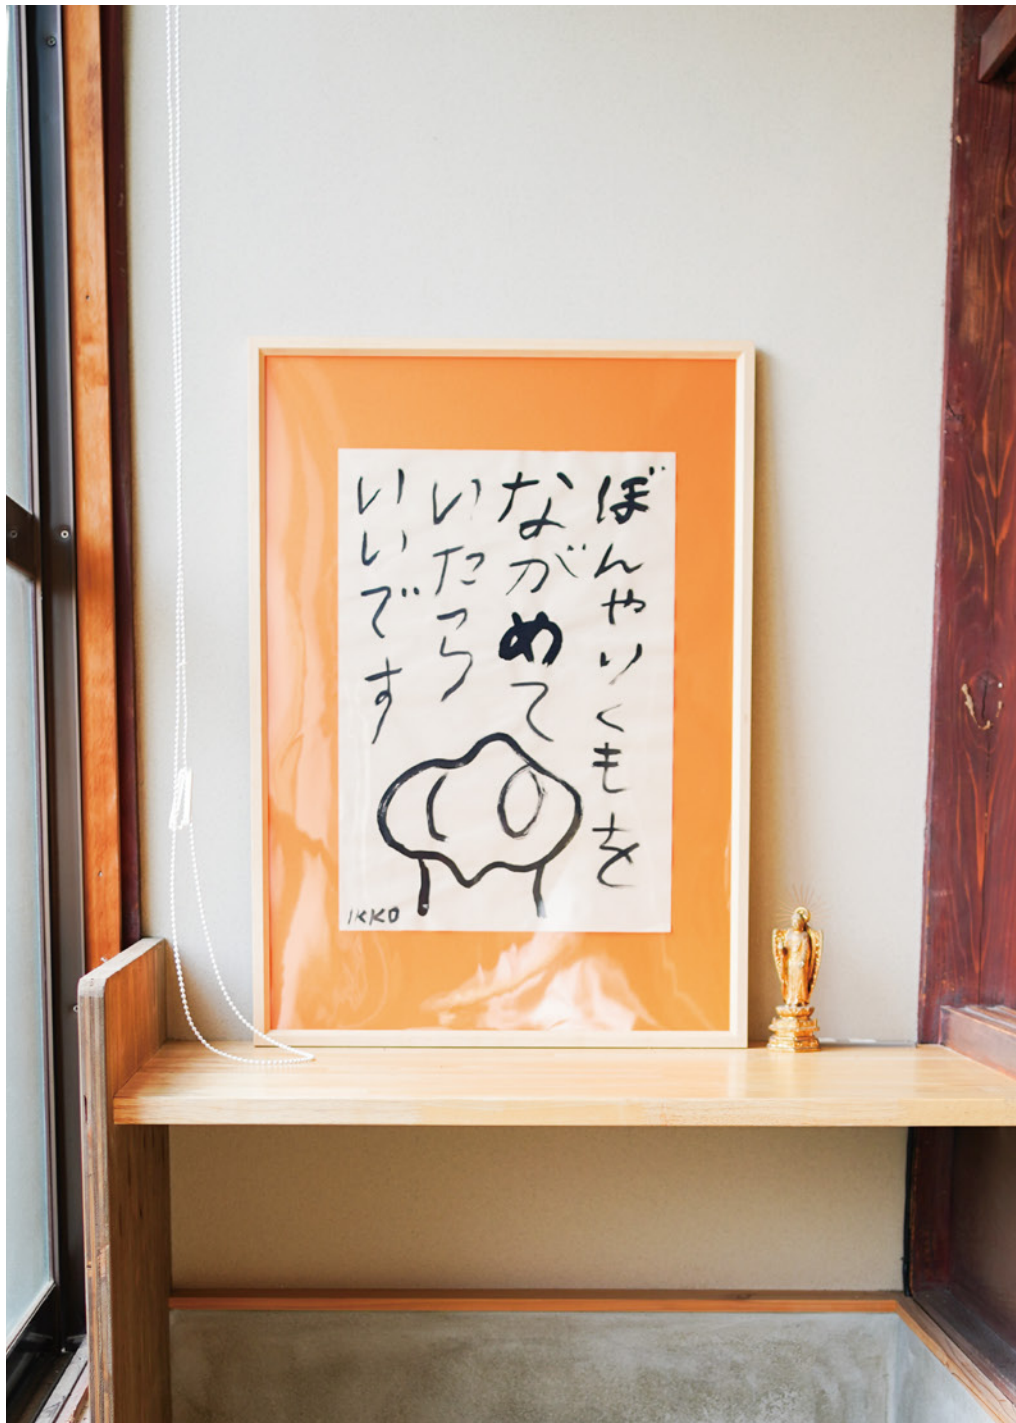 ぼんやりくもを
ながめて
いたら
いいです
IKKO